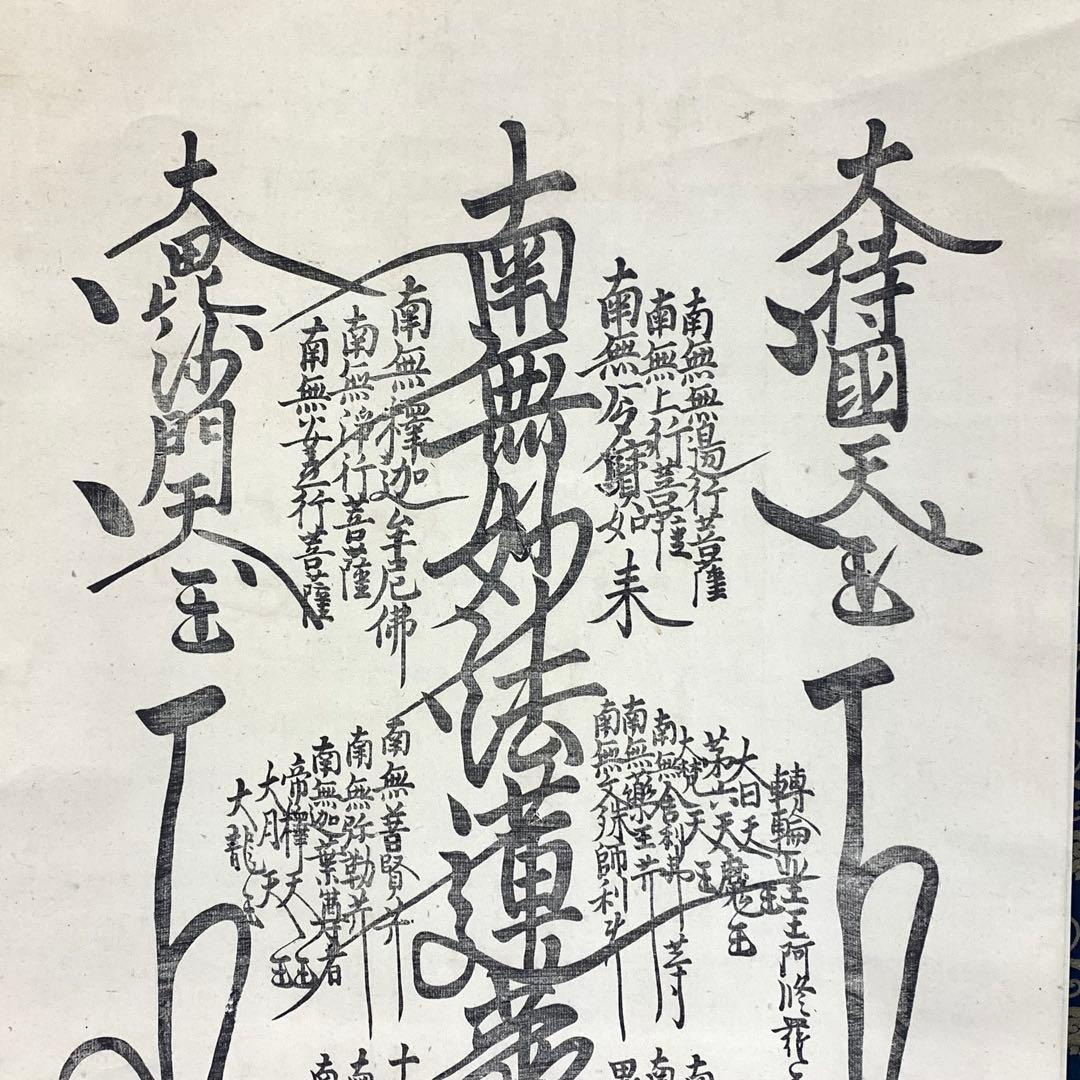 大持國天玉
南無無邊行菩薩
南無上行菩薩
南無多寶如来
南無妙法蓮華
南無釋迦牟尼佛
南無淨行菩薩
南無安立行菩薩
大毘沙門天玉
轉輪聖王阿修羅
大日天王
第六天魔王
大梵天王
南無舎利弗
南無藥王菩
南無文殊師利
南無普賢
南無弥勒
南無迦葉尊者
帝釋天王
大月天王
大龍王
南
南
十
南
南